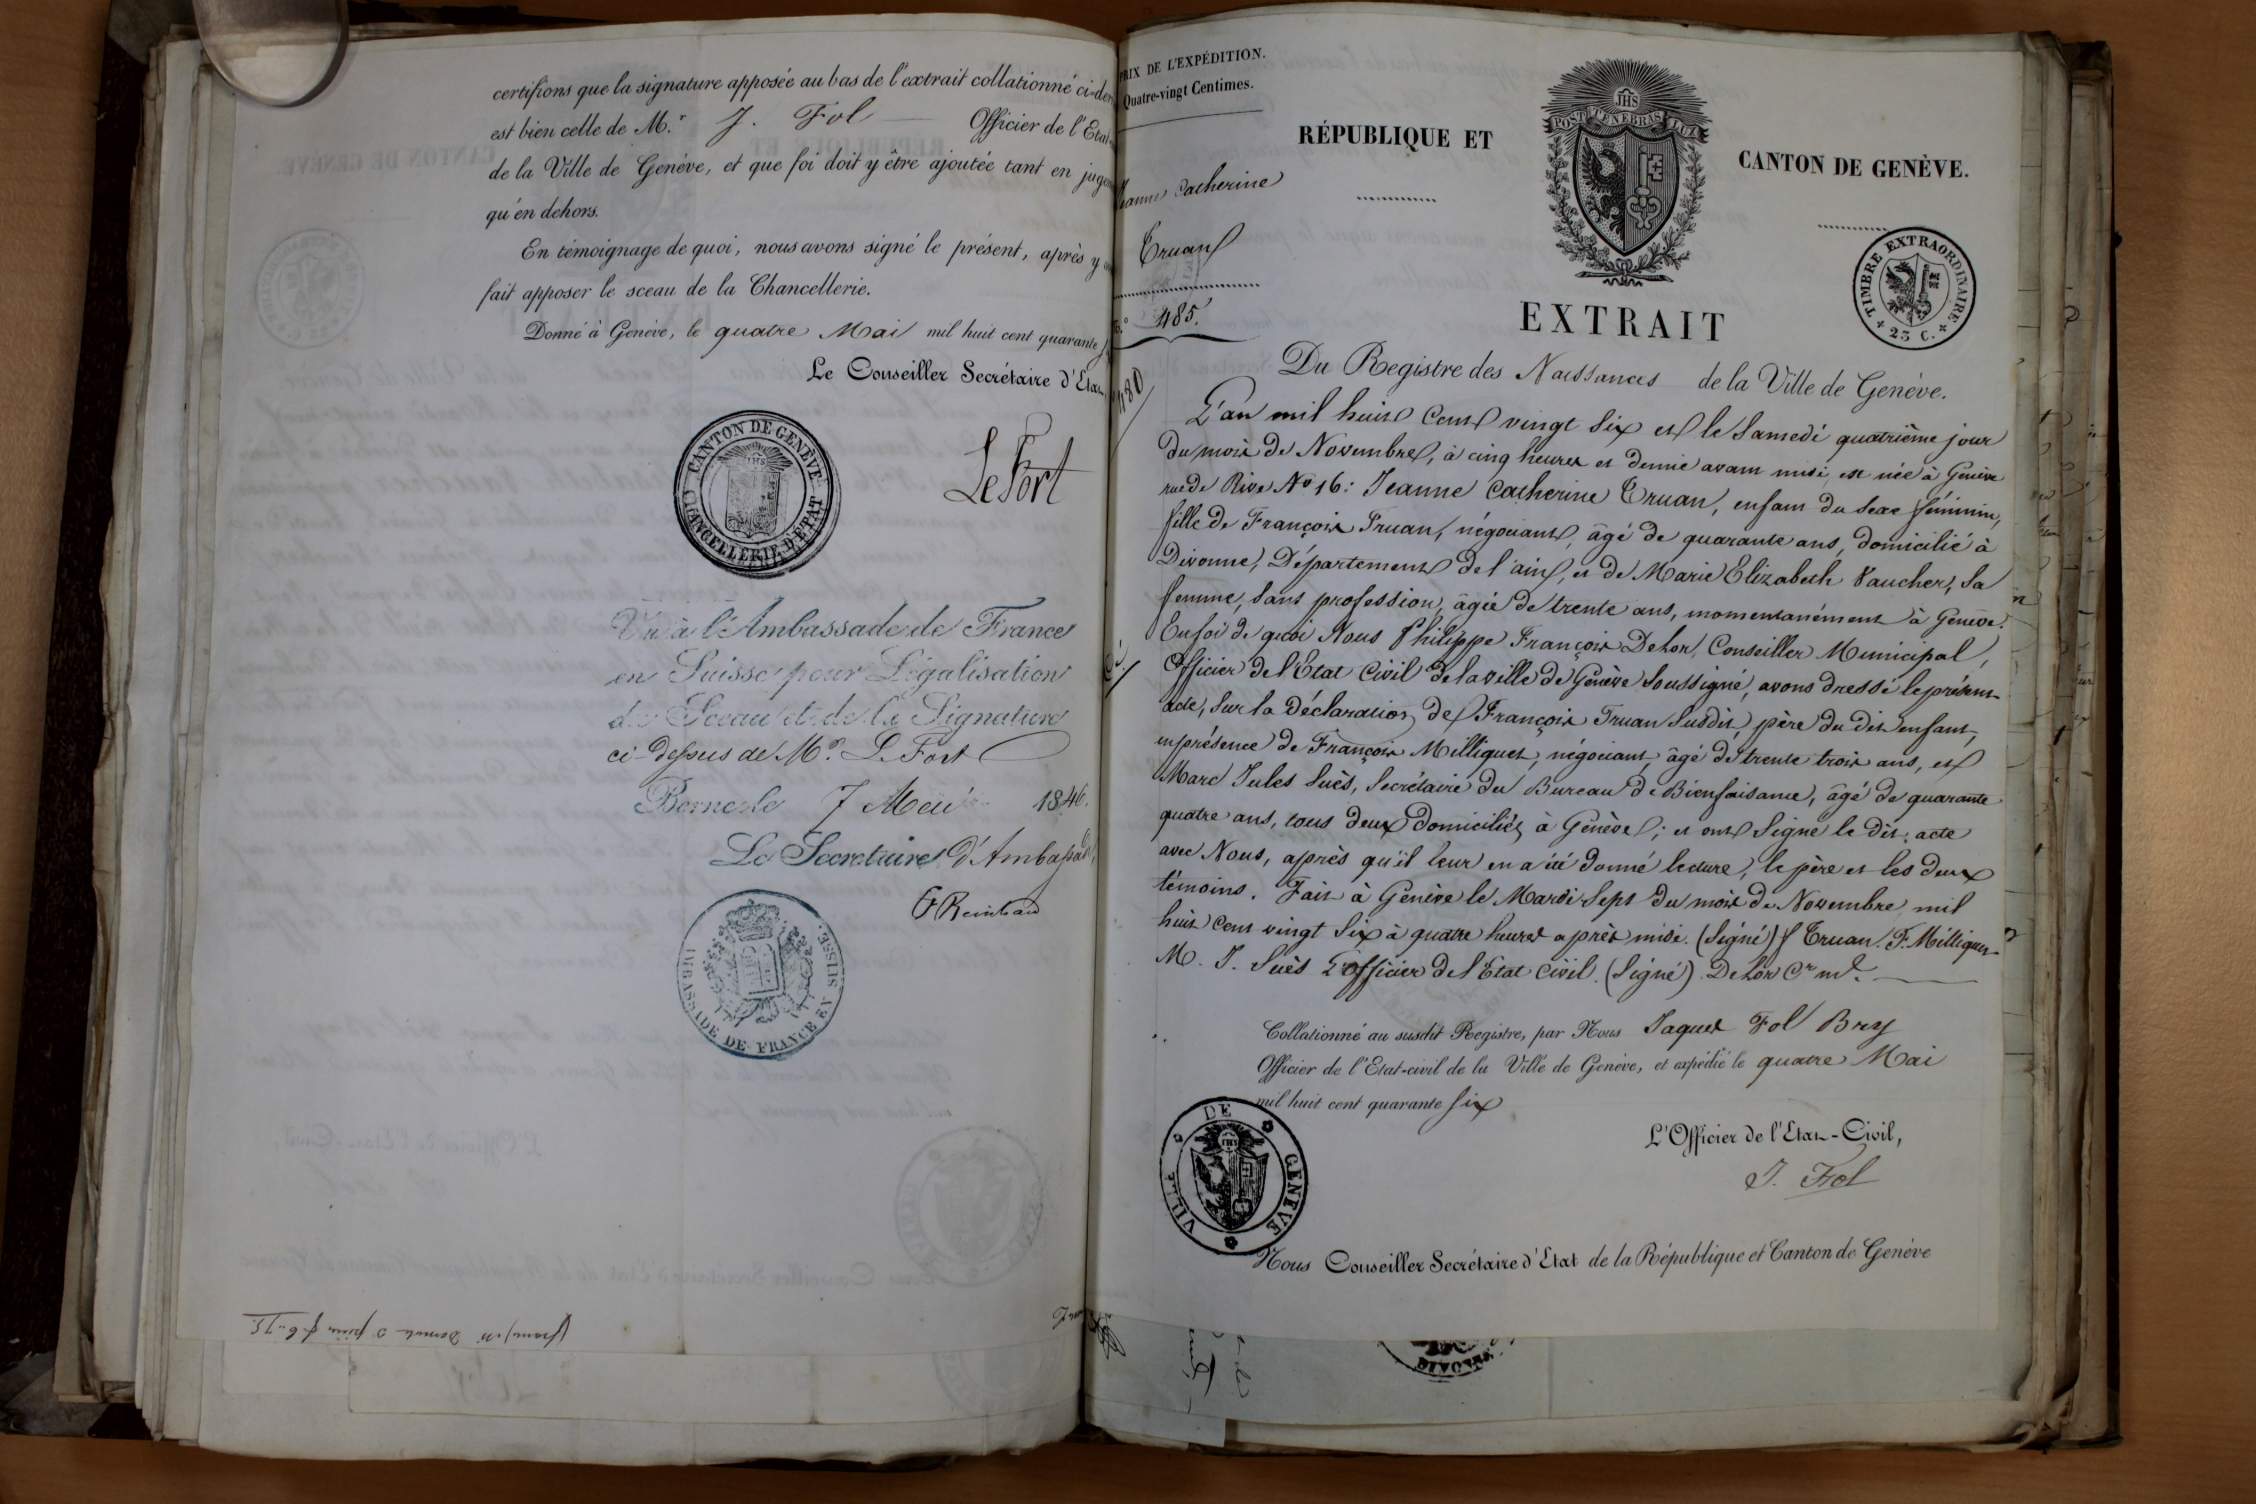 certifions que la signature apposée au bas de l'extrait collationné ci-des
est bien celle de M.r J. Fol Officier de l'Etat-
de la Ville de Genève, et que foi doit y être ajoutée tant en juge
qu'en dehors.
En témoignage de quoi, nous avons signé le présent, après y
fait apposer le sceau de la Chancellerie.
Donné à Genève, le quatre Mai mil huit cent quarante
Le Conseiller Secrétaire d'Etat
CANTON DE GENÈVE
CHANCELLERIE D'ETAT
JHS
Le Fort
Vu à l'Ambassade de France
en Suisse pour Légalisation
du Sceau et de la Signature
ci-dessus de Mr. Le Fort
Berne le 7 Mai 1846.
Le Secrétaire d'Ambassade,
AMBASSADE DE FRANCE EN SUISSE.
PRIX DE L'EXPÉDITION.
Quatre-vingt Centimes.
Jeanne Catherine
Truan
No. 485.
RÉPUBLIQUE ET
JHS
POST TENEBRAS LUX
CANTON DE GENÈVE.
TIMBRE EXTRAORDINAIRE
23 C.
EXTRAIT
Du Registre des Naissances de la Ville de Genève.
L'an mil huit Cent vingt Six et le Samedi quatrième jour
du mois de Novembre, à cinq heures et demie avant midi, est née à Genève
rue de Rive No 16: Jeanne Catherine Truan, enfant du Sexe féminin,
fille de François Truan, négociant, âgé de quarante ans, domicilié à
Divonne, Département de l'ain, et de Marie Elizabeth Vaucher, Sa
femme, Sans profession, âgée de trente ans, momentanément à Genève.
En foi de quoi Nous Philippe François Delor, Conseiller Municipal,
Officier de l'Etat Civil de la ville de Genève Soussigné, avons dressé le présent
acte, Sur la Déclaration de François Truan Susdit, père du dit enfant,
en présence de François Milliquet, négociant, âgé de trente trois ans, et
Marc Jules Suès, Secrétaire du Bureau de Bienfaisance, âgé de quarante
quatre ans, tous deux domiciliés à Genève; et ont Signé le dit acte
avec Nous, après qu'il leur en a été donné lecture, le père et les deux
témoins. Fait à Genève le Mardi Sept du mois de Novembre mil
huit Cent vingt Six à quatre heures après midi. (Signé) f Truan. F. Milliquet
M. J. Suès L'Officier de l'Etat Civil. (Signé) Delor Cr ml.
Collationné au susdit Registre, par Nous Jaques Fol Bry
Officier de l'Etat-civil de la Ville de Genève, et expédié le quatre Mai
mil huit cent quarante Six
L'Officier de l'Etat-Civil,
J. Fol
VILLE DE GENEVE
JHS
Nous Conseiller Secrétaire d'Etat de la République et Canton de Genève